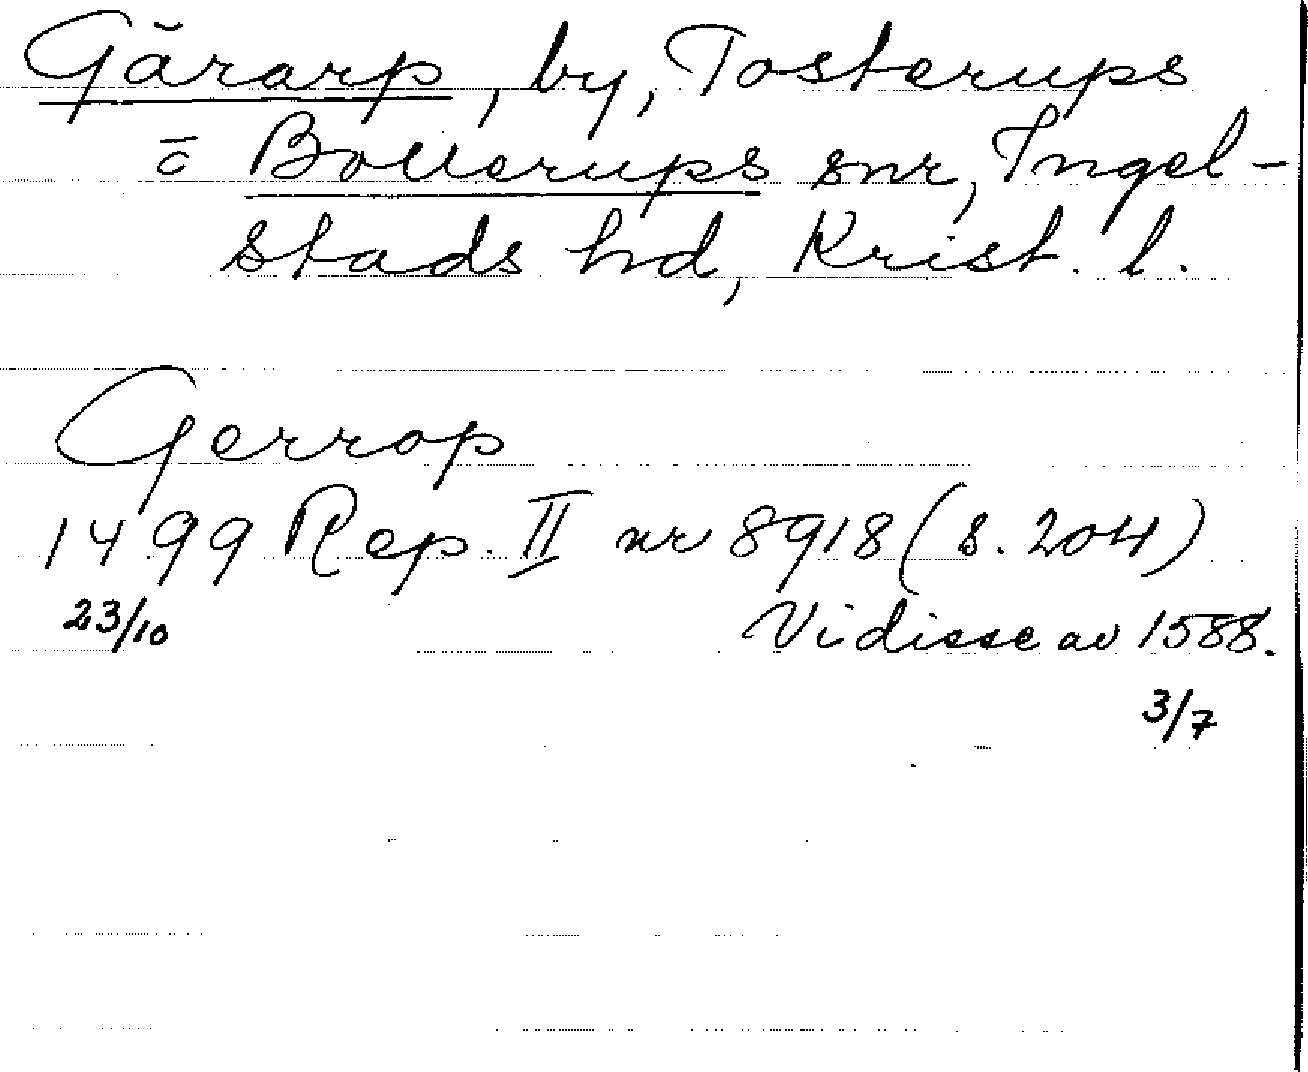 Gärarp, by, Tosterups
ö Bollerups snr, Ingel-
stads hd, Krist. l.
Gerrop
1499 Rep. II nr 8918 (s. 204)
23/10 Vidisse av 1588.
3/7